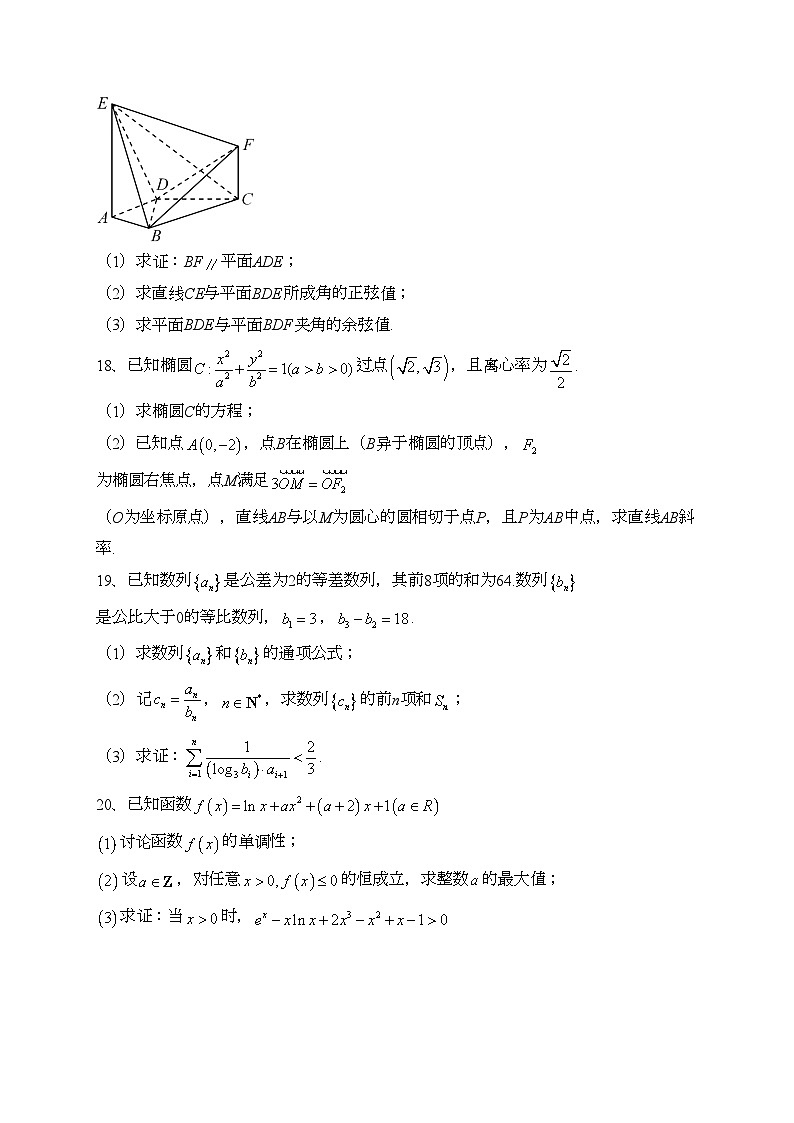 E
F
D
C
A
B
（1）求证：BF∥平面ADE；
（2）求直线CE与平面BDE所成角的正弦值；
（3）求平面BDE与平面BDF夹角的余弦值.
18、已知椭圆C：x²/a²+y²/b²=1(a>b>0)过点(√2,√3)，且离心率为√2/2.
（1）求椭圆C的方程；
（2）已知点A(0,−2)，点B在椭圆上（B异于椭圆的顶点），F₂
为椭圆右焦点，点M满足3OM=OF₂
（O为坐标原点），直线AB与以M为圆心的圆相切于点P，且P为AB中点，求直线AB斜
率.
19、已知数列{aₙ}是公差为2的等差数列，其前8项的和为64.数列{bₙ}
是公比大于0的等比数列，b₁=3，b₃−b₂=18.
（1）求数列{aₙ}和{bₙ}的通项公式；
（2）记cₙ=aₙ/bₙ，n∈N*，求数列{cₙ}的前n项和Sₙ；
（3）求证：∑ⁿᵢ₌₁ 1/((log₃bᵢ)·aᵢ₊₁)<2/3.
20、已知函数f(x)=ln x+ax²+(a+2)x+1(a∈R)
(1)讨论函数f(x)的单调性；
(2)设a∈Z，对任意x>0,f(x)≤0的恒成立，求整数a的最大值；
(3)求证：当x>0时，eˣ−xln x+2x³−x²+x−1>0